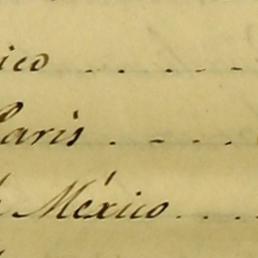 ico . . . - . -
Paris . - . .
México . . . .